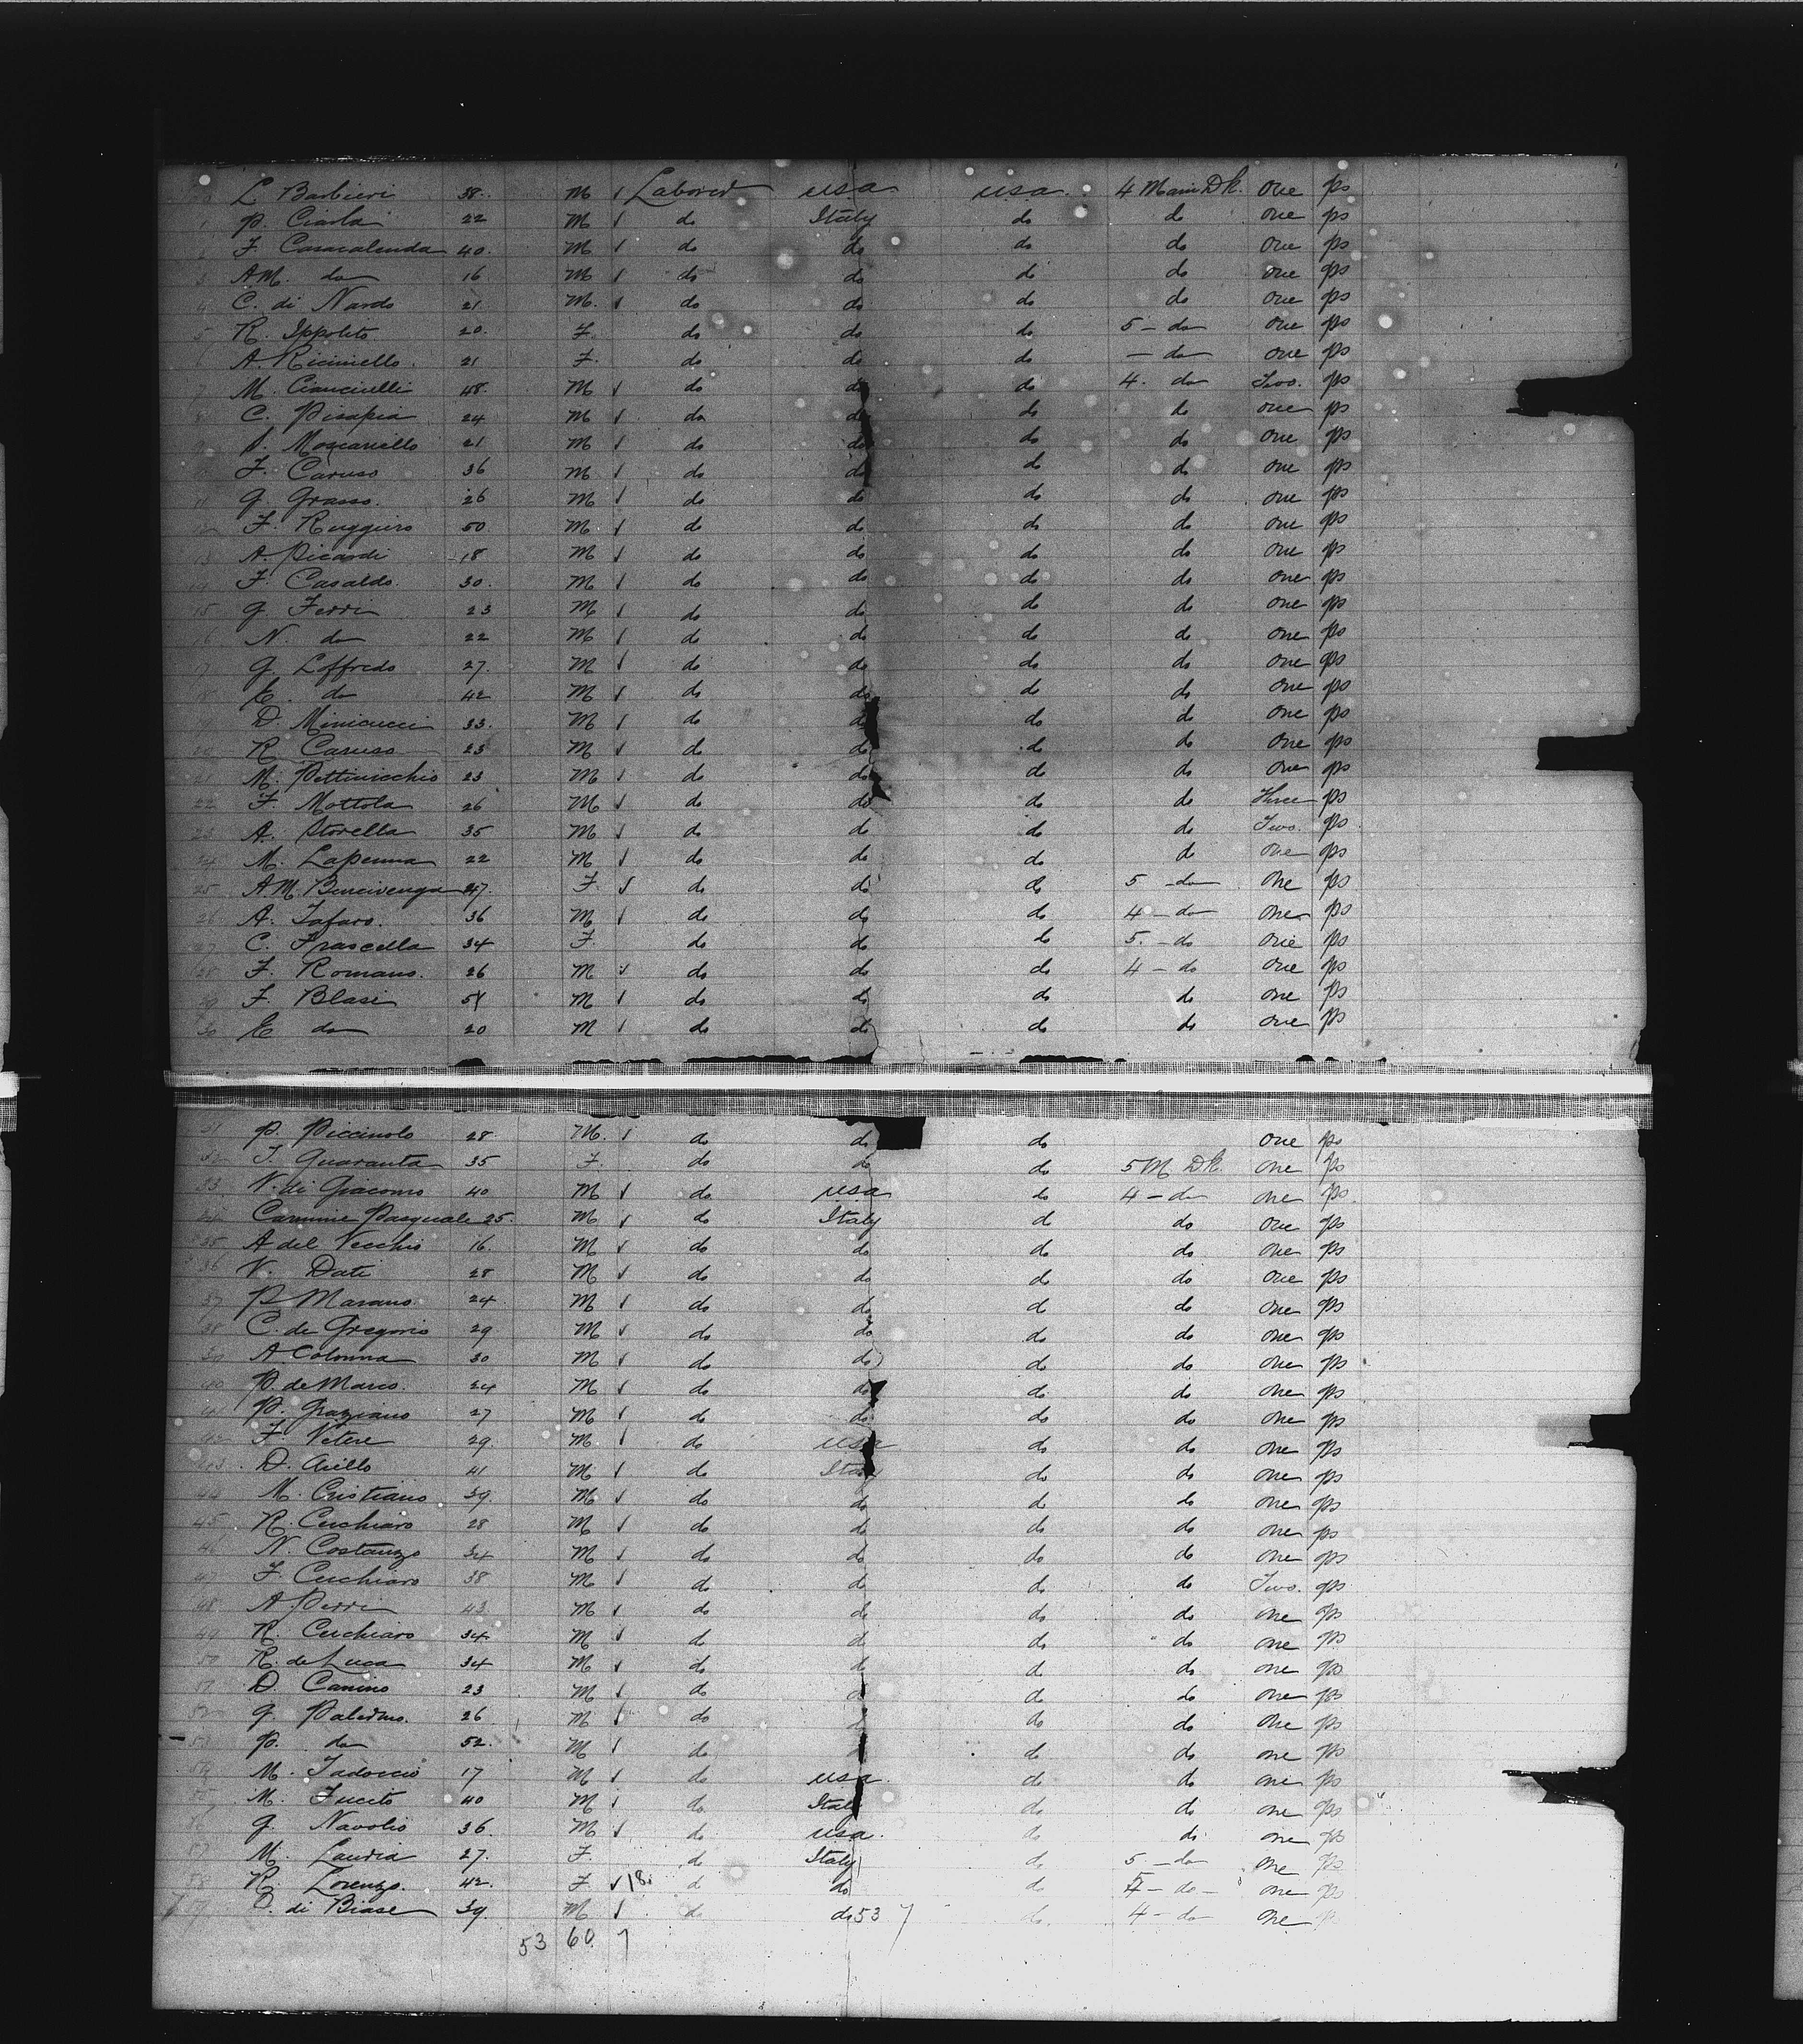 L Barbieri 38. M ✓ Laborer usa usa 4 Main Dk. one ps
1 P. Ciarla 22 M ✓ do Italy do do one ps
2 F. Casacalenda 40. M ✓ do do do do one ps
3 A.M. do 16 M ✓ do do do do one ps
4 C. di Nardo 21. M. ✓ do do do do one ps
5 R. Ippolito 20. F. do do do 5 - do one ps
6 A. Riciniello. 21 F. do do do - do one ps
7 M. Cianciulli 48. M ✓ do do do 4. do Two. ps
8 C. Pisapia 24 M ✓ do do do do one ps
9 Moscariello 21 M ✓ do do do do one ps
10 F. Caruso 36 M ✓ do do do do one ps
11 G. Grasso. 26 M ✓ do do do do one ps
12 F. Ruggiero 50 M ✓ do do do do one ps
13 A. Picardi 18 M ✓ do do do do one ps
14 F. Casaldo. 30. M ✓ do do do do one ps
15 G Ferri 23 M ✓ do do do do one ps
16 N. do 22 M ✓ do do do do one ps
17 G Loffredo 27. M ✓ do do do do one ps
18 E. do 42 M ✓ do do do do one ps
19 D. Minicucci 33. M ✓ do do do do one ps
20 R Caruso 23 M ✓ do do do do one ps
21 M. Pettinicchio 23 M ✓ do do do do one ps
22 F. Mottola 26 M ✓ do do do do Three ps
23 A. Storella 35 M ✓ do do do do Two. ps
24 M. Lapenna 22 M ✓ do do do do one ps
25 A.M. Bencivenga 47. F. ✓ do do do 5 - do one ps
26 A. Tafaro. 36 M ✓ do do do 4 - do one ps
27 C. Frascella 34 F. do do do 5. - do one ps
28 F. Romano. 26 M ✓ do do do 4 - do one ps
29 F. Blasi M ✓ do do do do one ps
30 E do 20 M ✓ do do do do one ps
31 P. Piccinolo 28. M. ✓ do do do one ps
32 Quaranta 35 F. do do do 5 M Dk. one ps
33 V. di Giacomo 40 M ✓ do usa do 4 - do one ps
34 Carmine Pasquale 25. M ✓ do Italy do do one ps
35 A del Vecchio 16. M ✓ do do do do one ps
36 V. Dati 28 M ✓ do do do do one ps
37 P Marano. 24 M ✓ do do do do one ps
38 C. de Gregorio 29 M ✓ do do do do one ps
39 A. Colonna 30 M ✓ do do do do one ps
40 P. de Marco. 24 M ✓ do do do do one ps
41 P. Graziano 27 M ✓ do do do do one ps
42 F. Vetere 29. M. ✓ do usa do do one ps
43 D. Aiello 41 M ✓ do Italy do do one ps
44 M. Cristiano 39. M ✓ do do do do one ps
45 R. Cerchiaro 28 M ✓ do do do do one ps
46 N. Costanzo 34 M ✓ do do do do one ps
47 F. Cerchiaro 38 M ✓ do do do do Two. ps
48 A Perri 43 M ✓ do do do do one ps
49 R. Cerchiaro 34 M ✓ do do do do one ps
50 R. de Luca 34 M ✓ do do do do one ps
51 D. Canino 23 M ✓ do do do do one ps
52 G. Palermo. 26 M ✓ do do do do one ps
53 P. do 52. M ✓ do do do do one ps
54 M. 17 M ✓ do usa. do do one ps
55 M. Fucito 40 M ✓ do Italy do do one ps
56 G. Navolio 36. M ✓ do usa. do do one ps
57 M. Lauria 27. F. do Italy do 5 - do one ps
58 R. Lorenzo. 42. F ✓ 18. do do do - do - one ps
59 di Biase 39. M ✓ do do 53 7 do. 4 - do one
53 60. 7